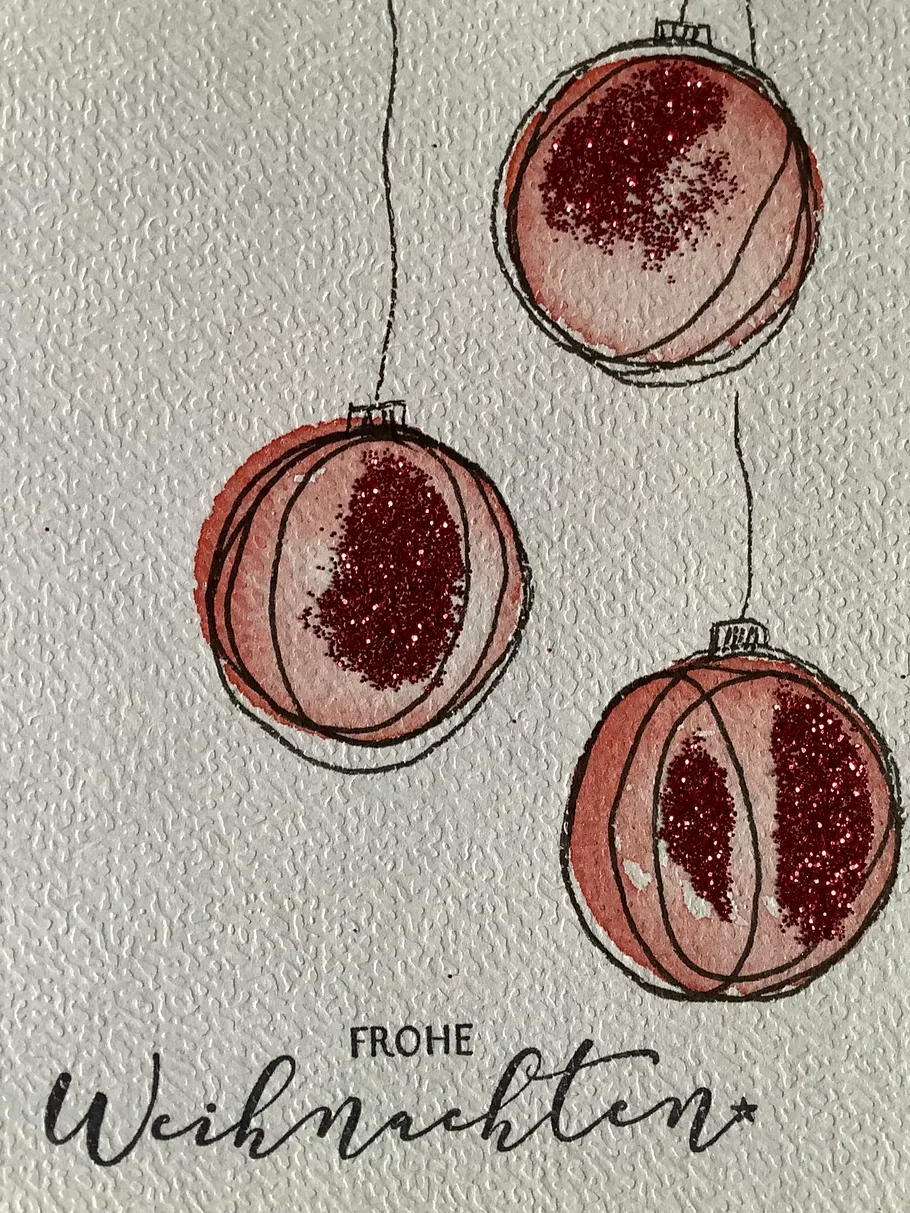 FROHE
Weihnachten